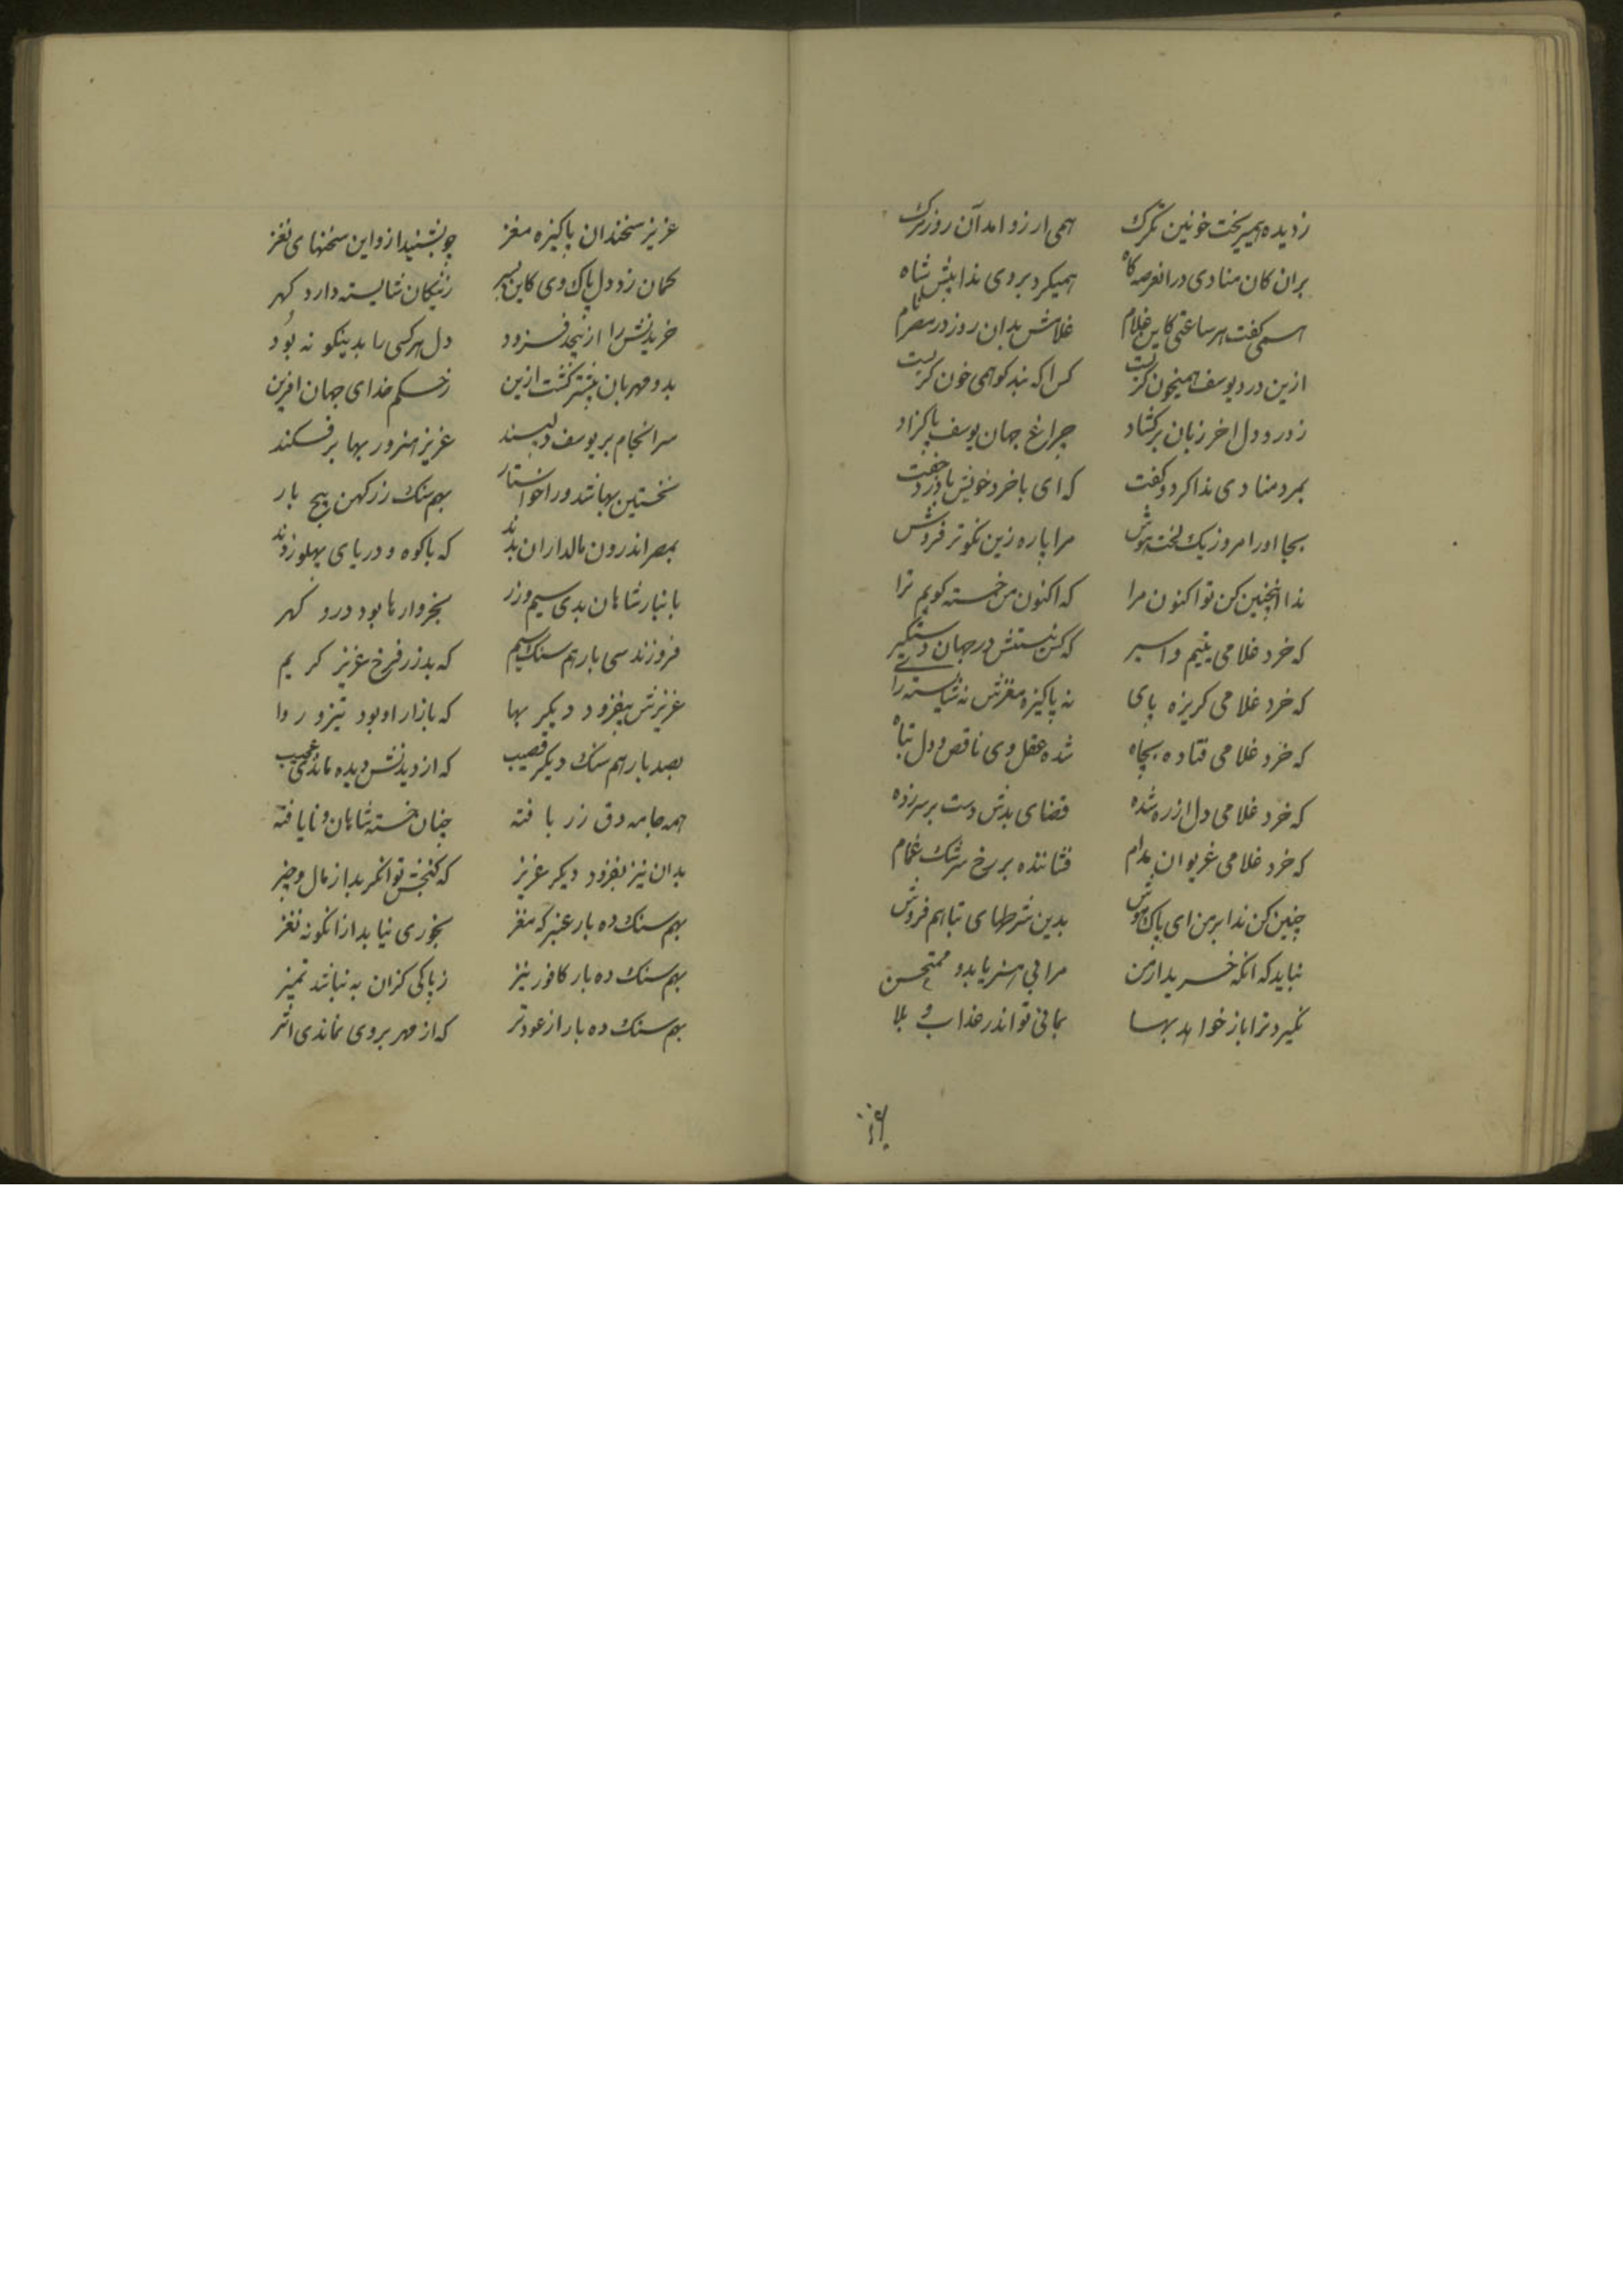 زدیده همیریخت خونین تکرک همی ارزو امد آن روز مرک
بران کان منادی درانعرصه کاه همیکرد بروی ندا پیش شاه
همی کفت هر ساعتی کاین غلام غلامش بدان روز در مصر نام
ازین درد یوسف همیخون کریست کسرا که بد کو همی خون کریست
ز درد دل اخر زبان برکشاد چراغ جهان یوسف پاکزاد
بمرد منادی ندا کرد و کفت که ای باخرد خویش با درد جفت
بجا اور امروز یک لخت هوش مرا پاره زین نکوتر فروش
ندا اینچنین کن تو اکنون مرا که اکنون من خسته کویم ترا
که خرد غلامی یتیم و اسیر که کس نیستش در جهان دستکیر
که خرد غلامی کریزه پای نه پاکیزه مغزش نه شایسته رای
که خرد غلامی فتاده بچاه شده عقل وی ناقص و دل تباه
که خرد غلامی دل از ره شده قضای بدش دست بر سر زده
که خرد غلامی غریوان مدام فشانده بر رخ سرشک غمام
چنین کن ندا بر من ای پاک هوش بدین شرطهای تباهم فروش
نباید که انکه خرید ازمن مرا بی هنر یابد و ممتحن
بکیرد ترا باز خواهد بها بمانی تو اندر عذاب و بلا
عزیز سخندان پاکیزه مغز چو بشنید ازو این سخنهای نغز
کمان زد دل پاک وی کاین پسر ز نیکان شایسته دارد کهر
خریدنش را از نچه فزود دل هر کسی را بدینکونه بود
بدو مهربان بیشتر کشت ازین ز حکم خدای جهان افرین
سرانجام بر یوسف دلپسند عزیز هنرور بها برفکند
نخستین بها شد ورا خواستار بهم سنک زر کهن پنج بار
بمصر اندرون مالداران بدند که با کوه و دریای پهلو زدند
بانبار شاهان بدی سیم و زر بخروارها بود در و کهر
فروزند سی بار هم سنک سیم که بد زر فرخ عزیز کریم
عزیزش بیفزود دیکر بها که بازار او بود تیز و روا
بصد بار هم سنک دیکر قصیب که از دیدنش دیده ماندی عجیب
همه جامه دق زر بافته چنان خسته شاهان و نایافته
بدان نیز بفزود دیکر عزیز که کنجش توانکر بد از مال و چیز
بهم سنک ده بار عنبر که مغز بخوری نیابد ازانکونه نغز
بهم سنک ده بار کافور نیز ز پاکی کزان به نباشد تمیز
بهم سنک ده بار از عود تر که از مهر بروی نماندی اثر